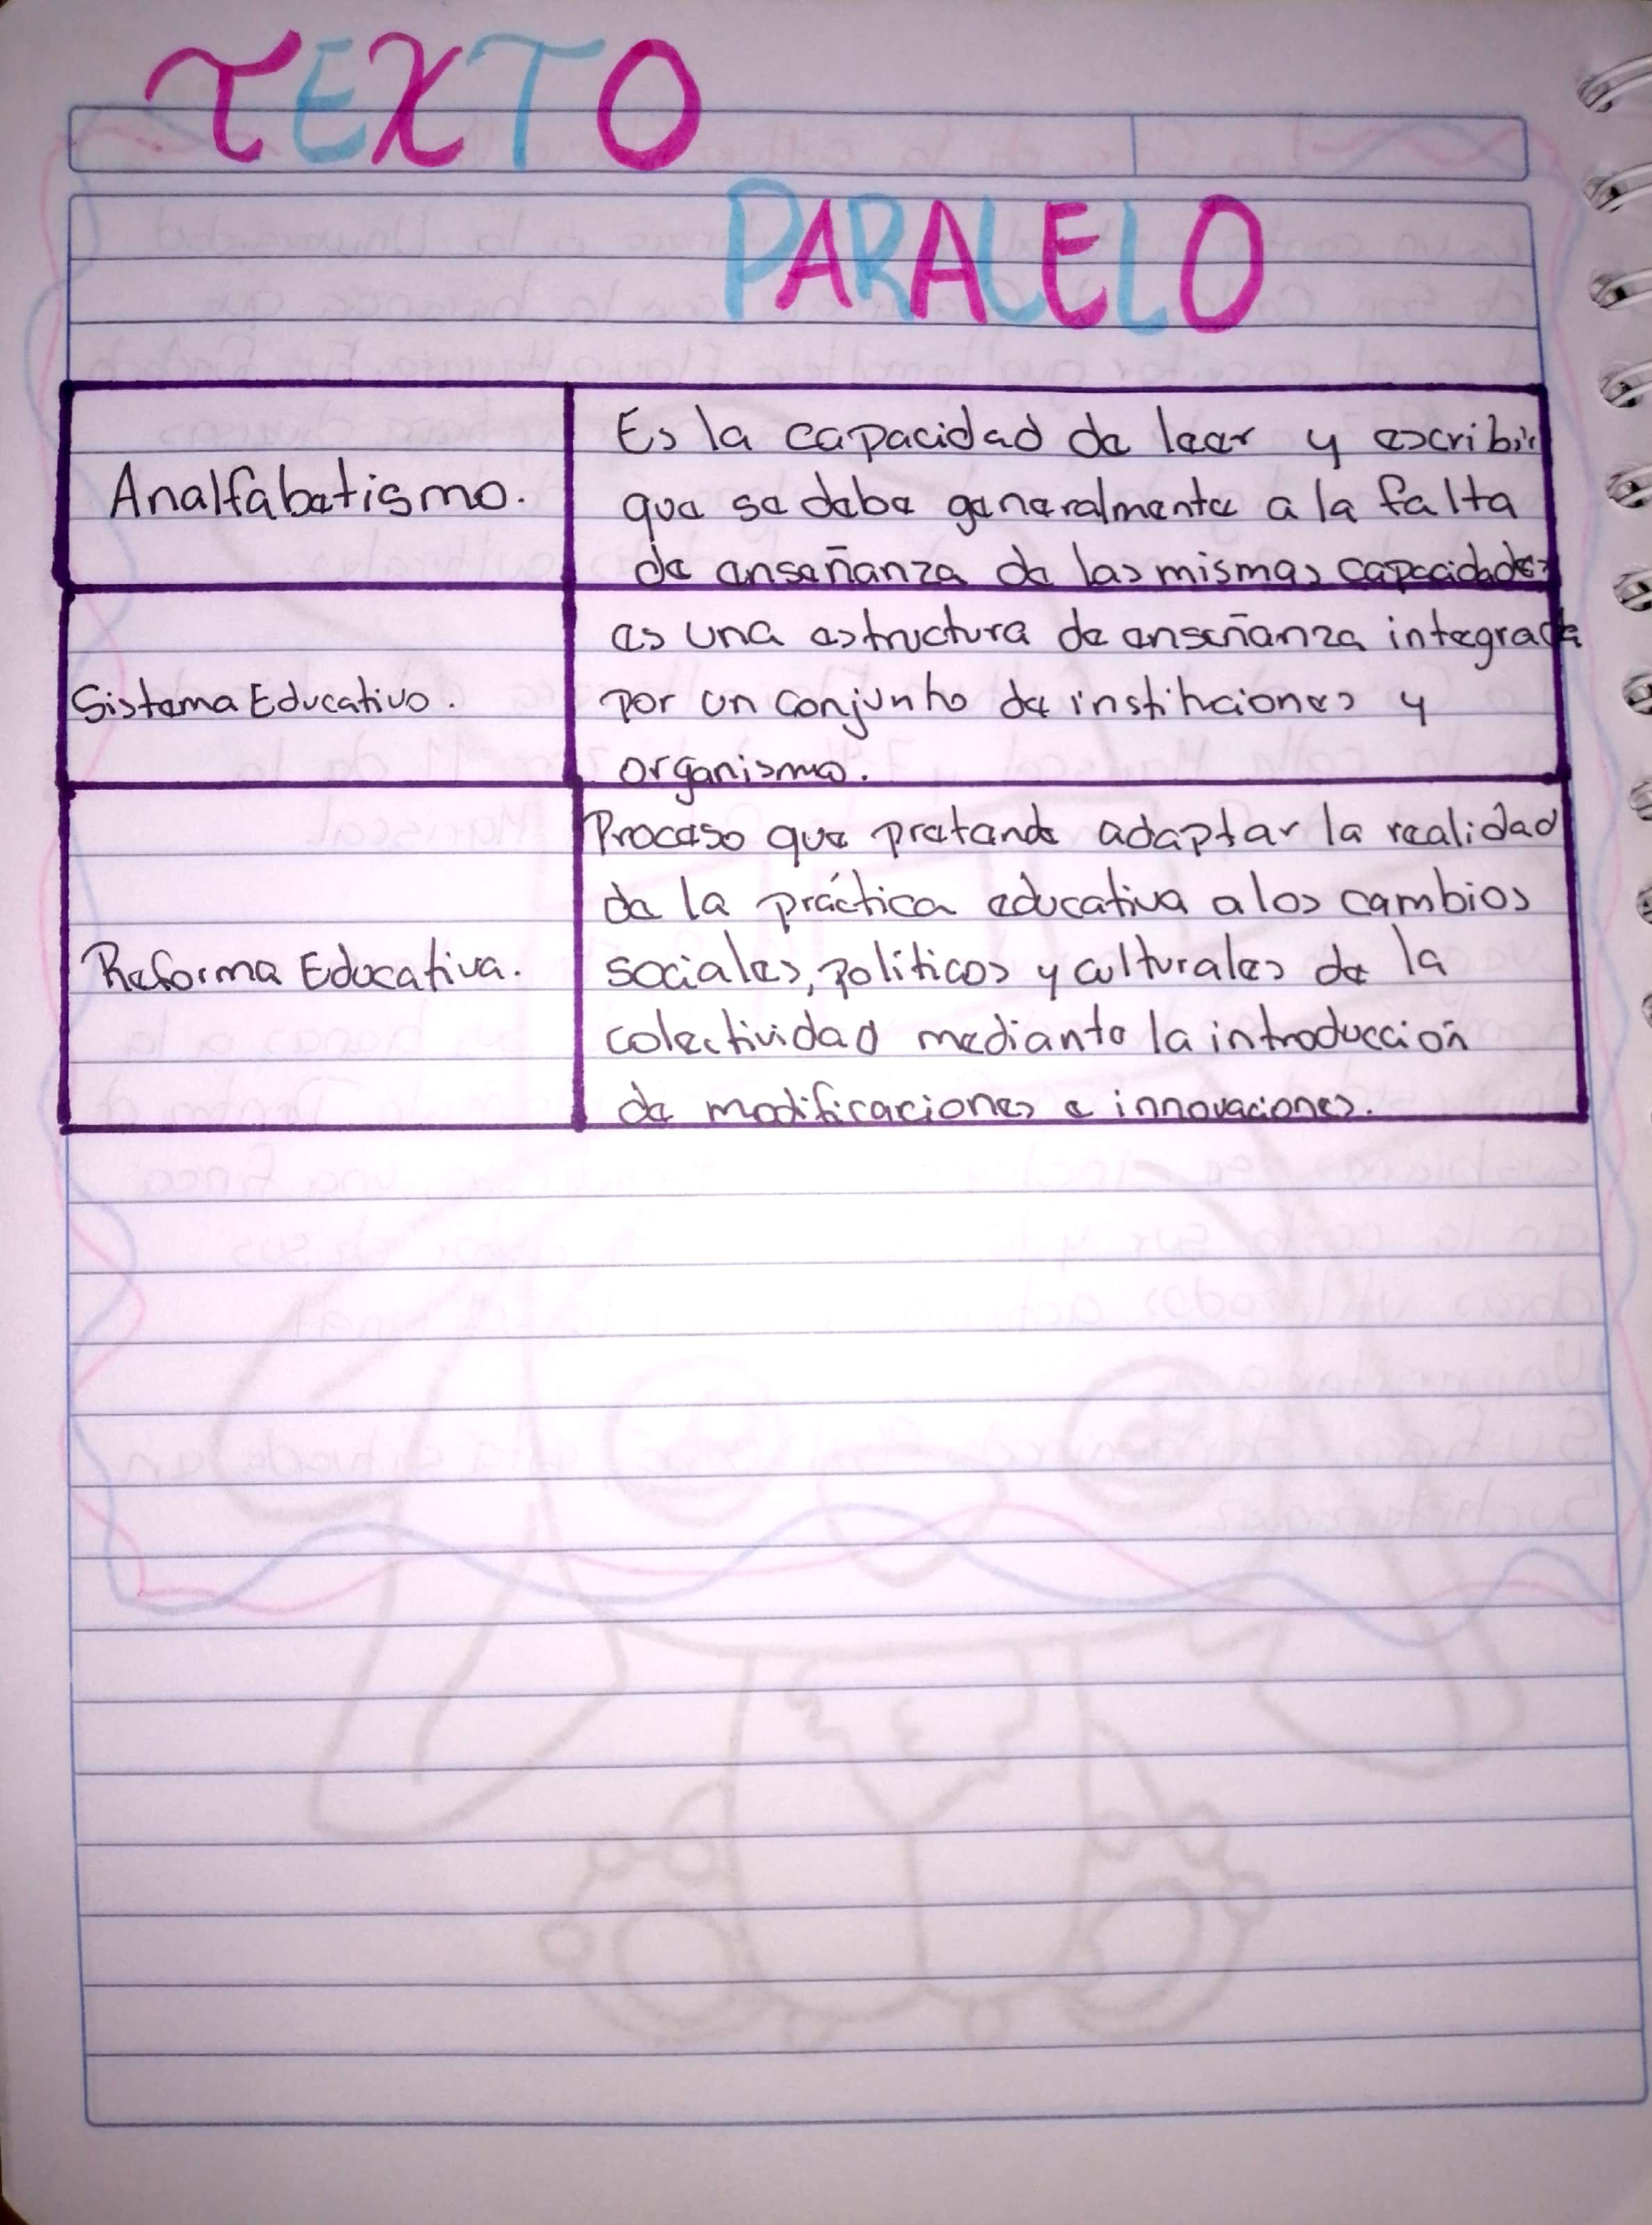 TEXTO
PARALELO
Analfabetismo.
Es la capacidad de leer y escribir
que se debe generalmente a la falta
de enseñanza de las mismas capacidades
Sistema Educativo.
es una estructura de enseñanza integrada
por un conjunto de instituciones y
organismo.
Reforma Educativa.
Proceso que pretende adaptar la realidad
de la práctica educativa a los cambios
sociales, políticos y culturales de la
colectividad mediante la introducción
de modificaciones e innovaciones.